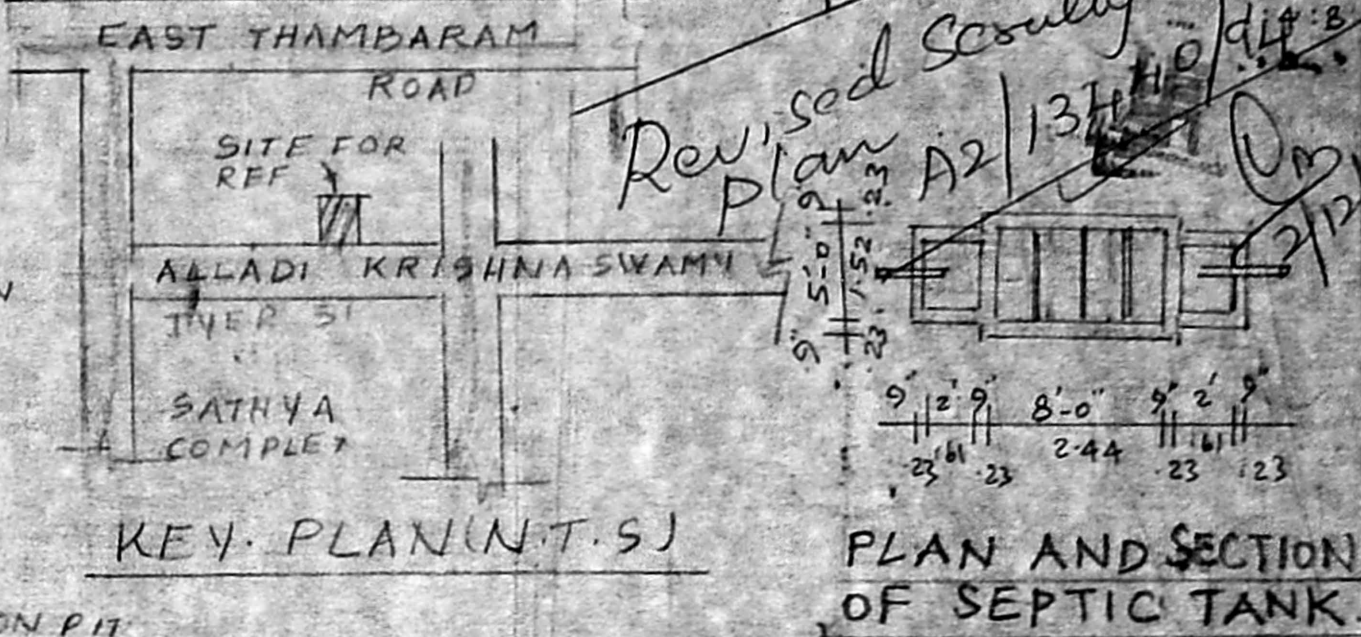 EAST THAMBARAM
ROAD
SITE FOR
REF
ALLADI KRISHNASWAMY
IYER ST
SATHYA
COMPLEX
KEY. PLAN (N.T.S)
Revised Scrutiny
Plan A2
9" 5'-0" 9"
.23 1.52 .23
9" 2' 9" 8'-0" 9" 2' 9"
.23 .61 .23 2.44 .23 .61 .23
PLAN AND SECTION
OF SEPTIC TANK.
ON PIT